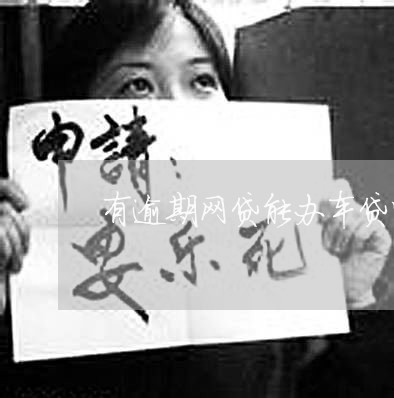 申請：
有逾期网贷能办车贷
安乐死